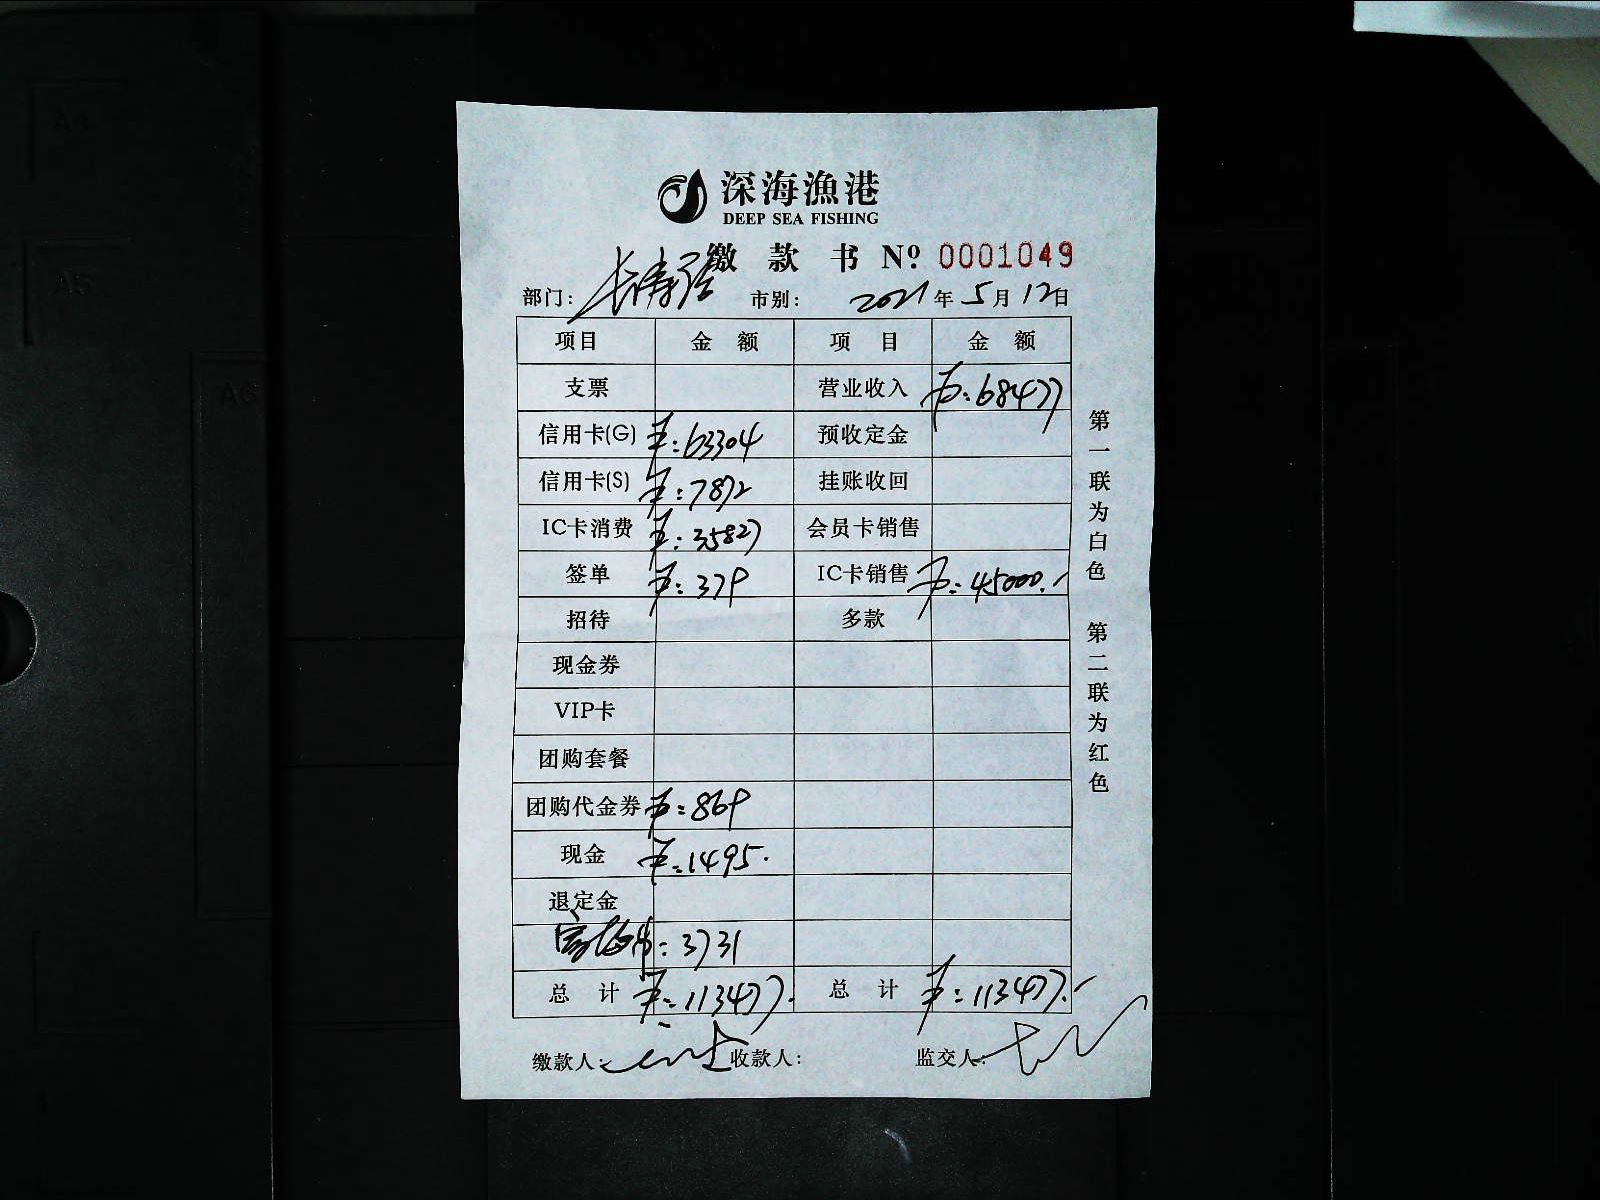 深海漁港
DEEP SEA FISHING
缴款书 Nº 0001049
部门: 长寿路 市别: 2021年5月12日
项目 金额 项目 金额
支票 营业收入 ¥:68477
信用卡(G) ¥:63304 预收定金
信用卡(S) ¥:7872 挂账收回
IC卡消费 ¥:35827 会员卡销售
签单 ¥:379 IC卡销售 ¥:45000.-
招待 多款
现金券
VIP卡
团购套餐
团购代金券 ¥:869
现金 ¥:1495.
退定金
¥:3731
总计 ¥:113477. 总计 ¥:113477.-
缴款人: 收款人: 监交人:
第一联为白色 第二联为红色
A4
A5
A6